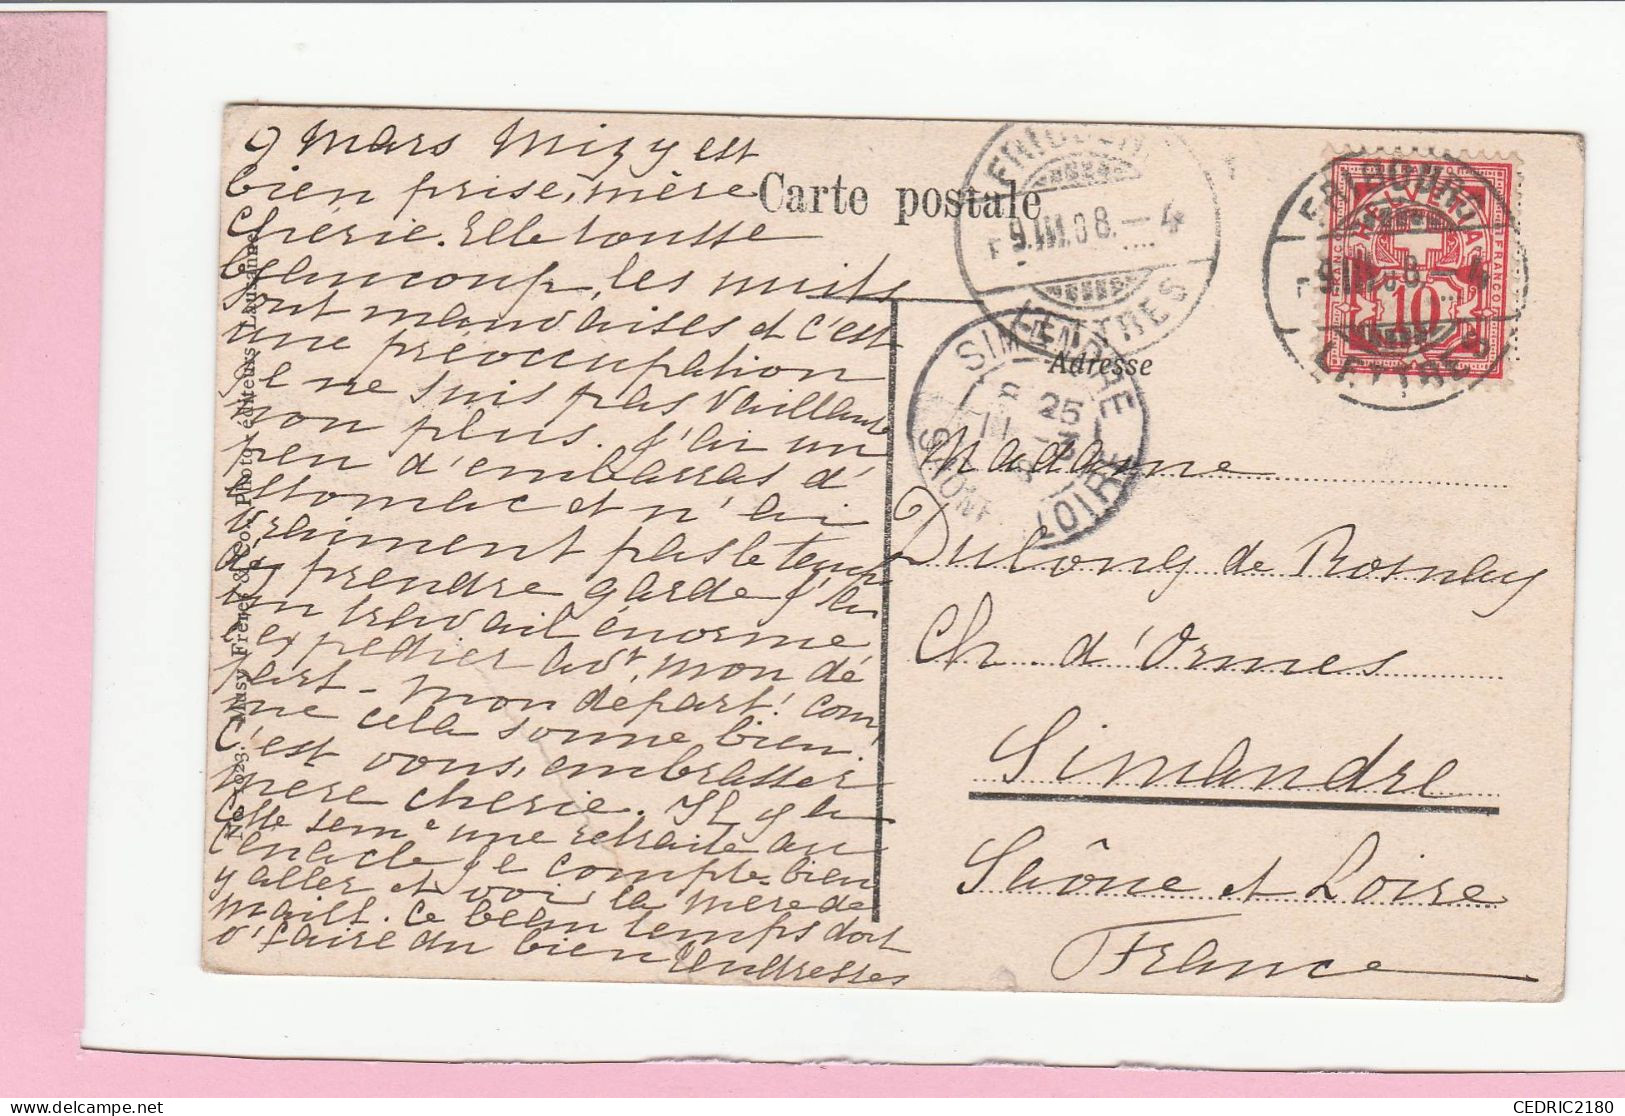 9 Mars Mizy est
bien prise, mère
chérie. Elle tousse
beaucoup, les nuits
sont mauvaises et c'est
une préoccupation
Je ne suis pas vaillante
non plus. J'ai un
peu d'embarras d'
estomac et n'ai
vraiment pas le temps
de prendre garde j'ai
un travail énorme
à expédier avt mon dé
part - mon départ! com
me cela sonne bien!
c'est vous, embrasser
mère chérie. Il y a
cette seme une retraite au
cénacle Je compte bien
y aller et voir la mère de
maill. Ce beau temps doit
v. faire du bien Tendresses
No. 1023. Musy Frères & Co., Photo-éditeurs, Lausanne.
Carte postale
Adresse
Madame
Dulong de Rosnay
Ch. d'Ormes
Simandre
Saône et Loire
France
FRIBOURG
9.III.08.-4
LETTRES
SIMANDRE
25
SAONE-ET-LOIRE
FRIBOURG
9.III.08.-4
LETTRES
HELVETIA
FRANCO
FRANCO
10
CEDRIC2180